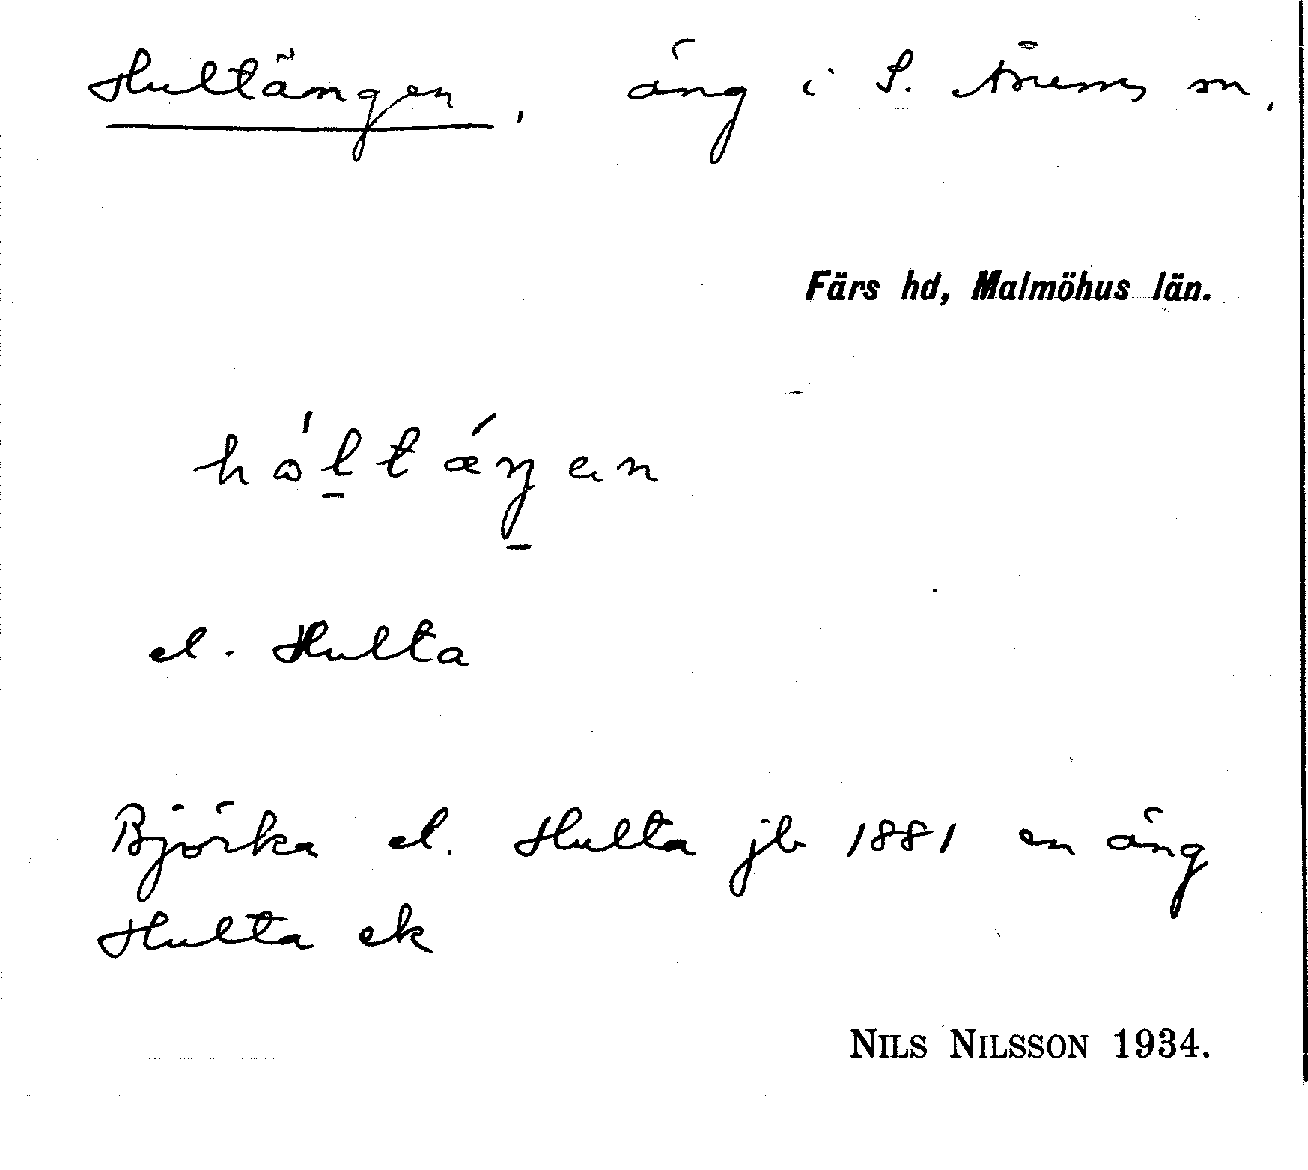 Hultängen, äng i S. Åsums sn,
Färs hd, Malmöhus län.
håltæŋen
el. Hulta
Björka el. Hulta jb 1881 en äng
Hulta ek
NILS NILSSON 1934.